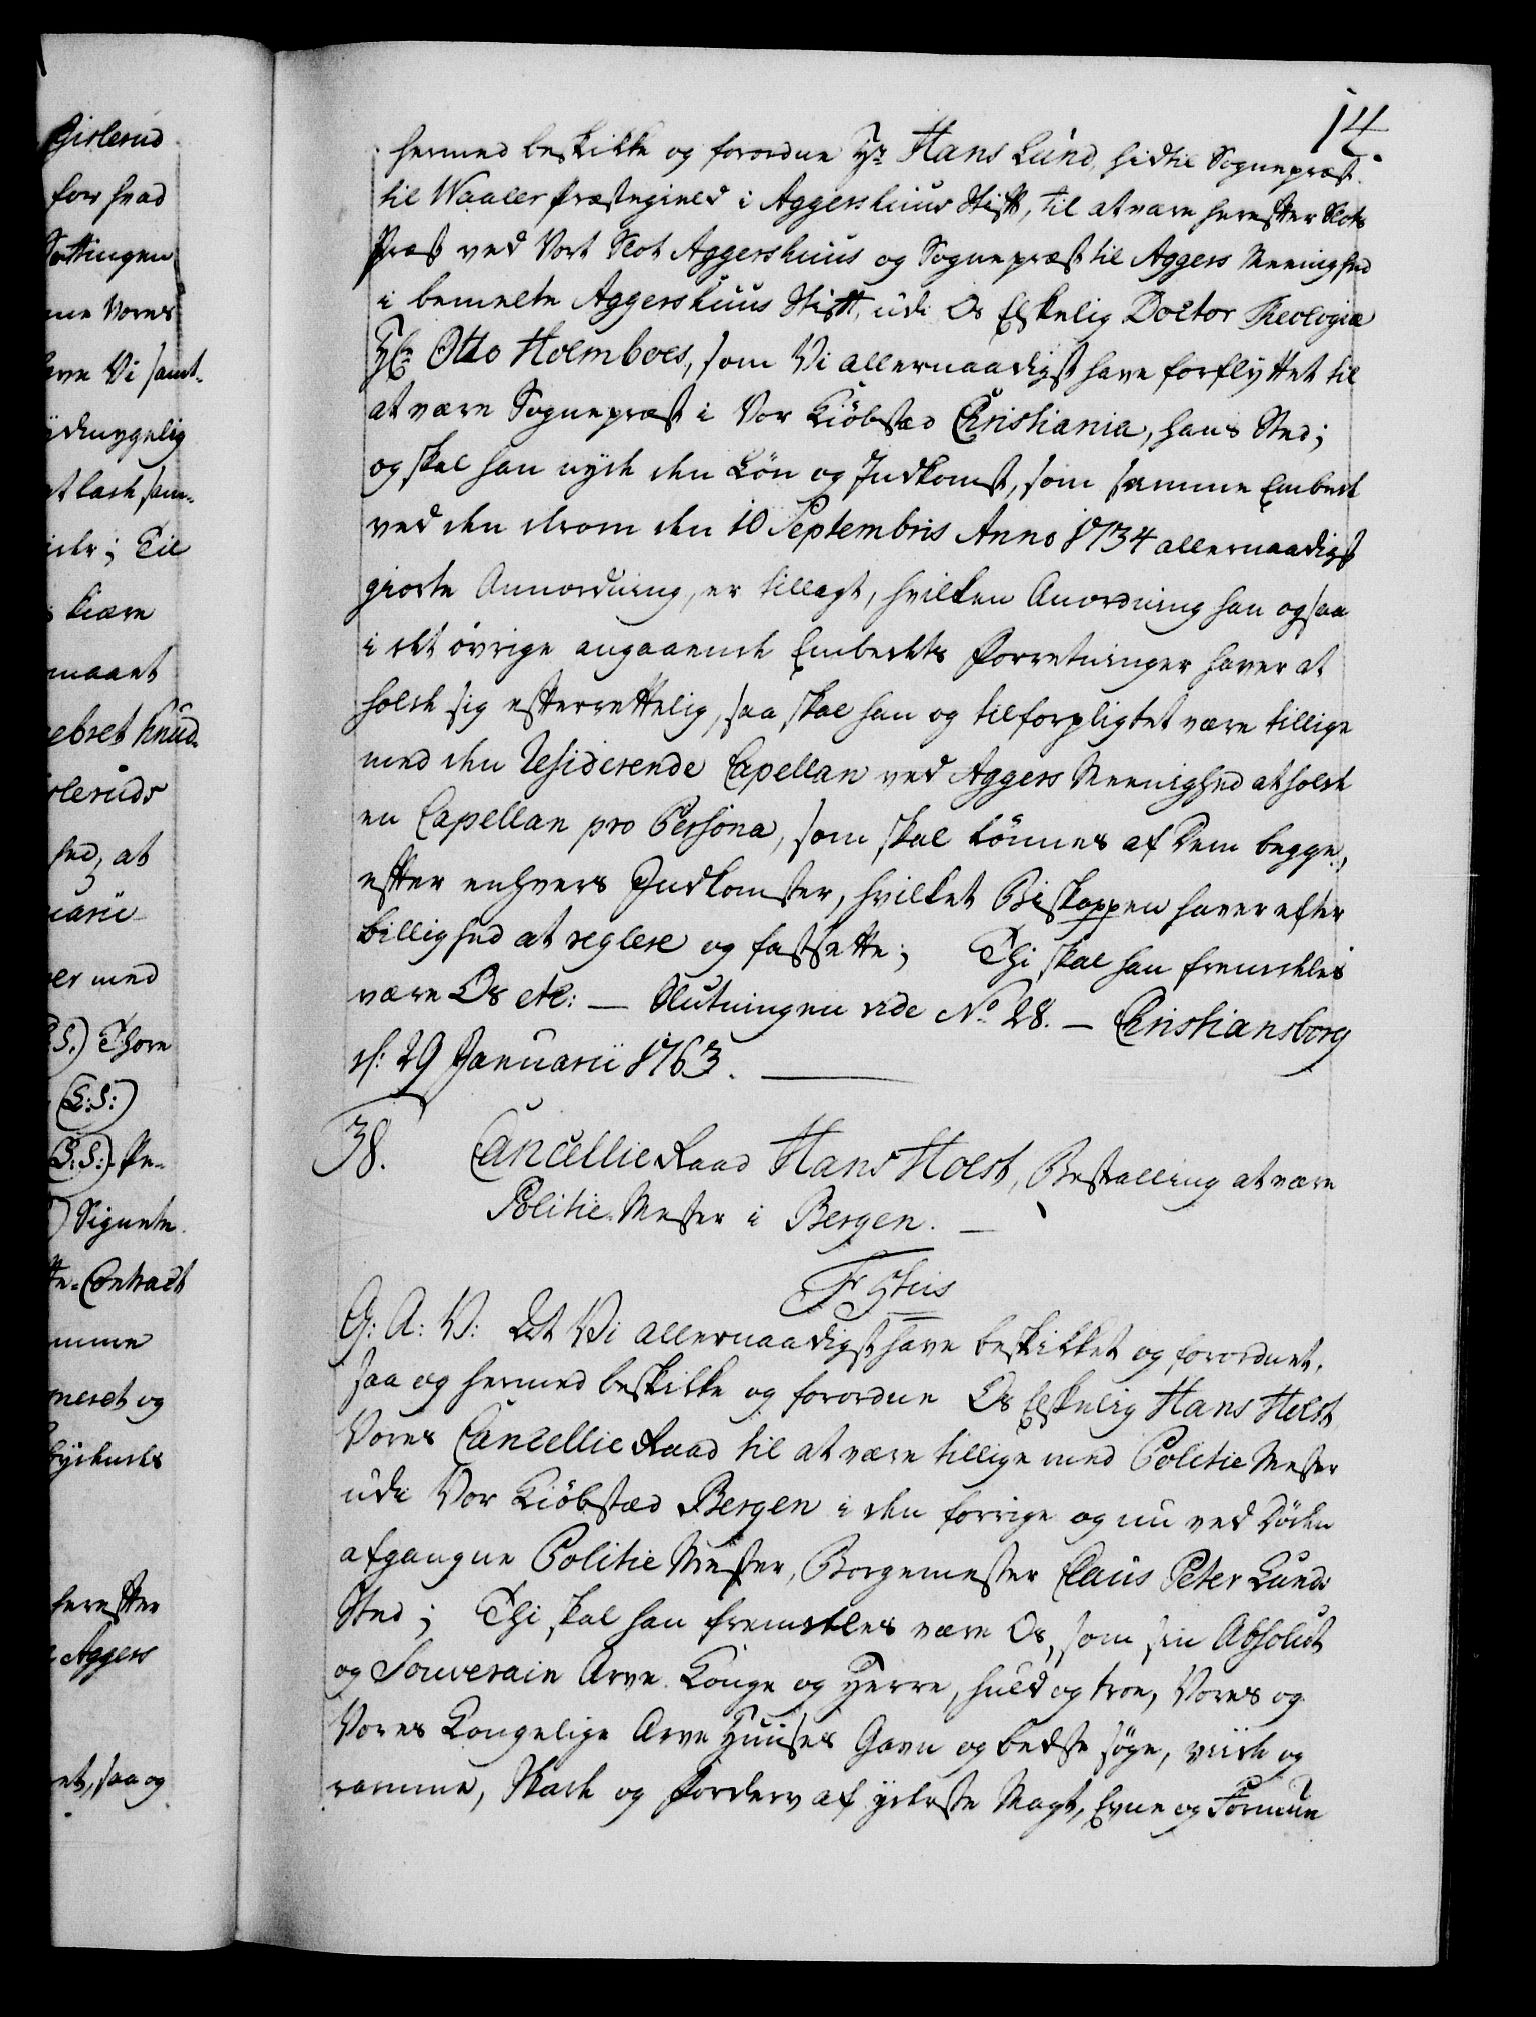 14.
hermed beskikke og forordne Hr. Hans Lund, hidtil Sognepræst
til Waaler Præstegield i Aggershuus Stift, til at være herefter Slots
Præst ved Vort Slot Aggershuus og Sognepræst til Aggers Meenighed
i bemelte Aggershuus Stift, udi Os Elskelig Doctor Theologiæ
Hr. Otto Holmboes, som Vi allernaadigst have forflyttet til
at være Sognepræst i Vor Kiöbstæd Christiania, hans Sted;
og skal han nyde den Lön og Indkomst, som samme Embede
ved den derom den 10 Septembris Anno 1734 allernaadigst
giorte Annordning, er tillagt, hvilken Anordning han ogsaa
i det övrige angaaende Embedets Forretninger haver at
holde sig efterrettelig, saa skal han og tilforpligtet være tillige
med den Residerende Capellan ved Aggers Meenighed at holde
en Capellan pro Persona, som skal lönnes af Dem begge,
efter enhvers Indkomster, hvilket Biskoppen haver efter
billighed at reglere og fastsette; Thi skal han fremdeles
være Os etc: — Slutningen vide No 28. — Christiansborg
d: 29 Januarii 1763.
38. Cancellie Raad Hans Holst, Bestalling at være
Politie-Mester i Bergen. —
Fr 5tus
G: A: V: At Vi allernaadigst have beskikket og forordnet,
saa og hermed beskikke og forordne Os Elskelig Hans Holst
Vores Cancellie Raad til at være tillige med Politie Mester
udi Vor Kiöbstæd Bergen i den forrige og nu ved Döden
afgangne Politie Mester, Borgemester Claus Peter Lunds
Sted; Thi skal han fremdeles være Os, som sin Absolut
og Souverain Arve Konge og Herre, huld og troe, Vores og
Vores Kongelige Arve Huuses Gavn og bedste söge, viide og
ramme, Skade og Forderv af yderste Magt, Evne og Formue
Gislerud
for hvad
Vores
Vi samt-
ydmygelig
Til
kiære
Knud-
at
med
Thore
(L:S:)
Signete
Contract
og
herefter
Aggers
saa og